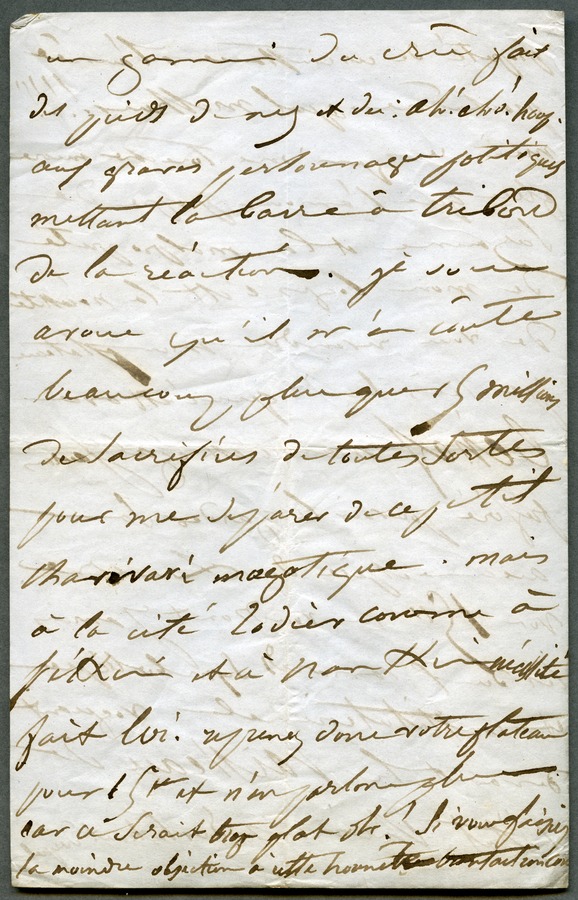 un gamin du crû fait
des pieds de nez et des: oh! oho! houp.
aux graves personnages politiques
mettant la barre à tribord
de la réaction. je vous
avoue qu'il m'en coûte
beaucoup plus que 15 millions
de sacrifices de toutes sortes
pour me séparer de ce petit
charivari magotique. mais
à la cité Rodier comme à
pékin et à nankin nécessité
fait loi. reprenez donc votre plateau
pour 15 et n'en parlons plus
car ce serait trop plat oh! Si vous faisiez
la moindre objection à cette honnête